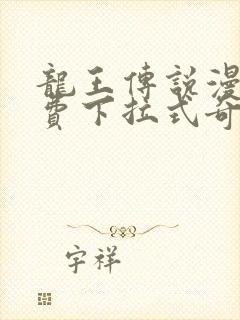 龍王傳說漫
費下拉式奇
宇祥